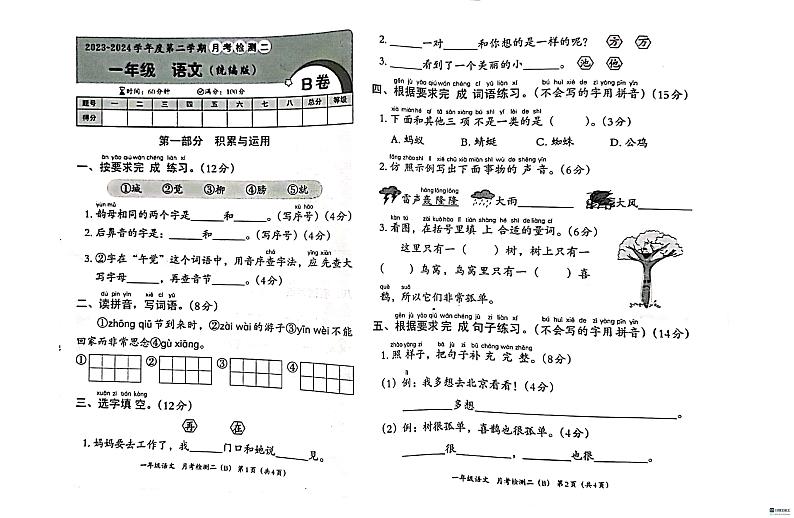 2023-2024学年度第二学期月考检测二
一年级 语文(统编版)
B卷
时间:60分钟 满分:100分
题号 一 二 三 四 五 六 七 八 总分 等级
得分
第一部分 积累与运用
àn yāo qiú wán chéng liàn xí
一、按要求完成练习。(12分)
①城 ②觉 ③柳 ④膀 ⑤就
yùn mǔ xù hào
1. 韵母相同的两个字是______和______。(写序号)(4分)
2. 后鼻音的字是:______和______。(写序号)(4分)
chá yīng xiān
3. ②字在“午觉”这个词语中,用音序查字法,应先查大
写字母______,再查音节______。(4分)
dú pīn yīn xiě cí yǔ
二、读拼音,写词语。(8分)
①zhōng qiū节到来时,②zài wài的游子③yīn wèi不能
回家而非常思念④gù xiāng。
① ② ③ ④
xuǎn zì tián kòng
三、选字填空。(12分)
再 在
1. 妈妈要去工作了,我______门口和她说______见。
一年级语文 月考检测二(B) 第1页(共4页)
2. ______一对______和你想的是一样的呢? 方 万
3. ______看到了一个美丽的小______。 池 他
gēn jù yāo qiú wán chéng cí yǔ liàn xí bú huì xiě de zì yòng pīn yīn
四、根据要求完成词语练习。(不会写的字用拼音)(15分)
1. 下面和其他三项不是一类的是( )。(3分)
A. 蚂蚁 B. 蜻蜓 C. 蜘蛛 D. 公鸡
2. 仿照示例写出下面事物的声音。(6分)
hōng lōng lōng
雷声轰隆隆 大雨______ 大风______
3. 看图,在括号里填上合适的量词。(6分)
这里只有一( )树,树上只有一
( )鸟窝,鸟窝里只有一( )喜
què suǒ
鹊,所以它们非常孤单。
gēn jù yāo qiú wán chéng jù zi liàn xí bú huì xiě de zì yòng pīn yīn
五、根据要求完成句子练习。(不会写的字用拼音)(14分)
zhào yàng zi bǎ jù zi bǔ chōng wán zhěng
1. 照样子,把句子补充完整。(8分)
lì
(1) 例:我多想去北京看看!(4分)
______多想______。
(2) 例:树很孤单,喜鹊也很孤单。(4分)
______很______,______也很______。
一年级语文 月考检测二(B) 第2页(共4页)